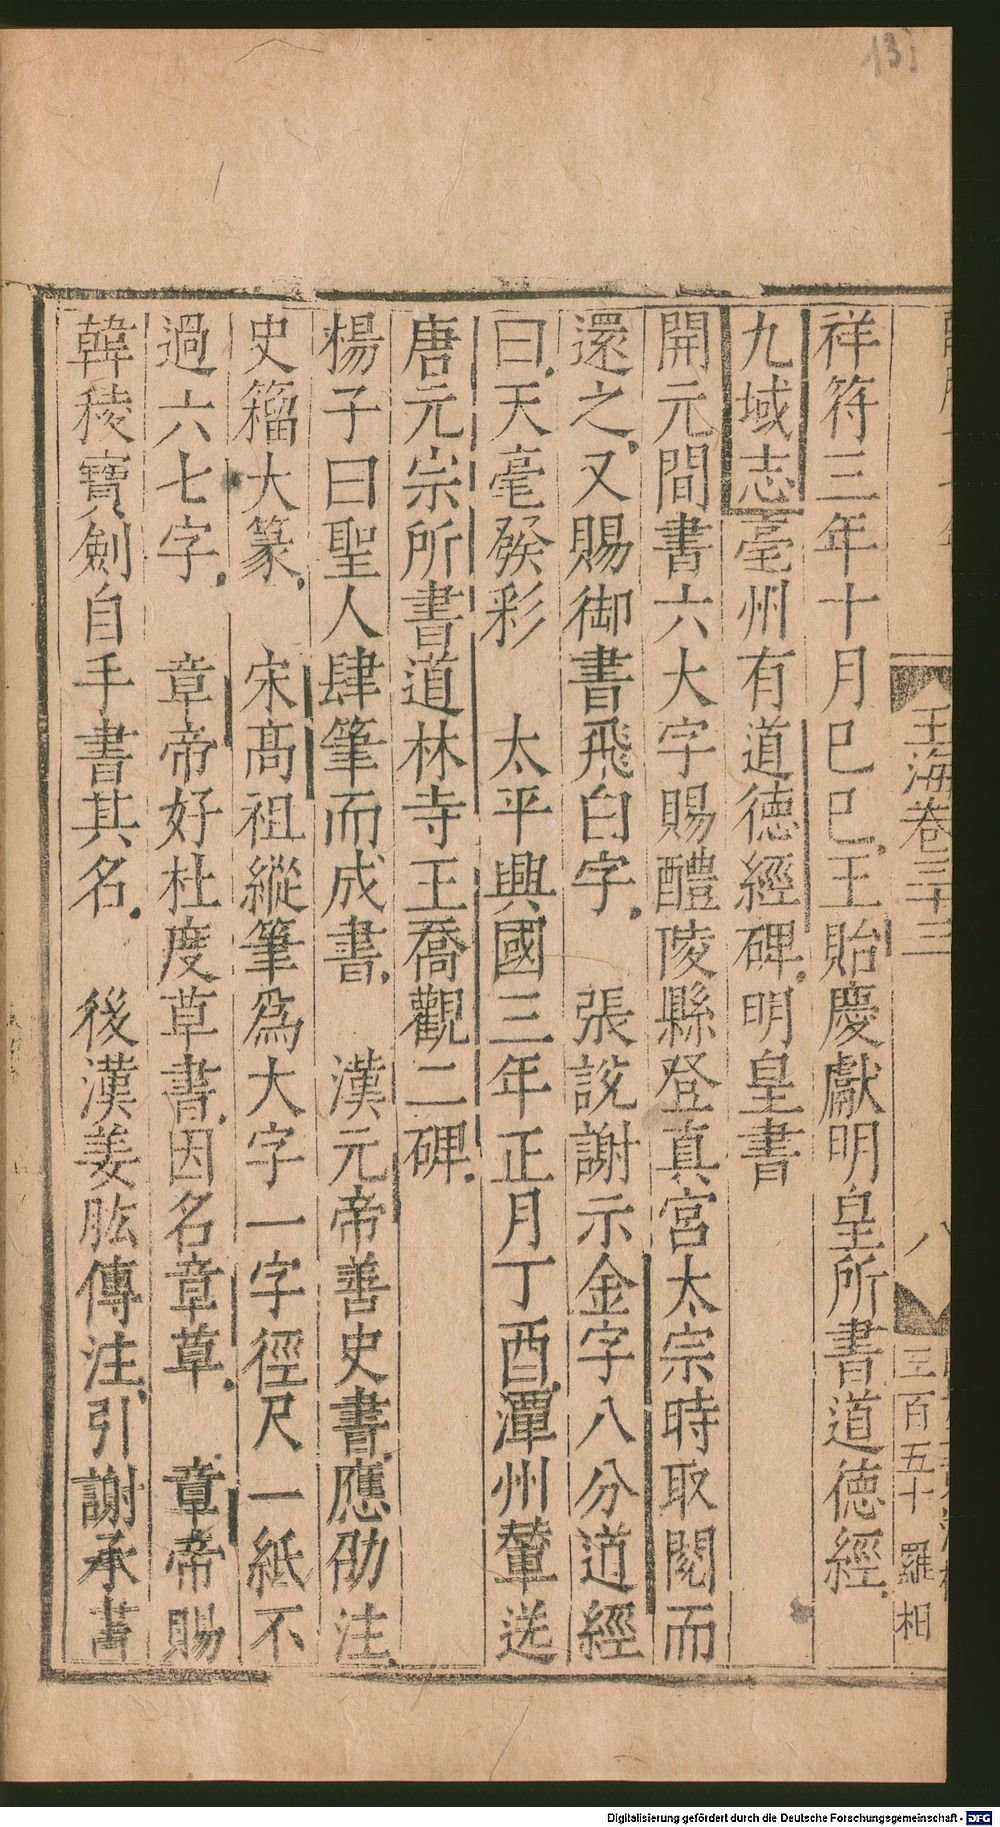 玉海卷三十三
八
三百五十 羅相
祥符三年十月巳巳王貽慶獻明皇所書道德經
九域志亳州有道德經碑明皇書
開元間書六大字賜醴陵縣登真宮太宗時取閱而
還之又賜御書飛白字 張說謝示金字八分道經
曰天毫發彩 太平興國三年正月丁酉潭州輦送
唐元宗所書道林寺王喬觀二碑
楊子曰聖人肆筆而成書 漢元帝善史書應劭注
史籀大篆 宋高祖縱筆為大字一字徑尺一紙不
過六七字 章帝好杜度草書因名章草 章帝賜
韓稜寶劍自手書其名 後漢姜肱傳注引謝承書
Digitalisierung gefördert durch die Deutsche Forschungsgemeinschaft - DFG